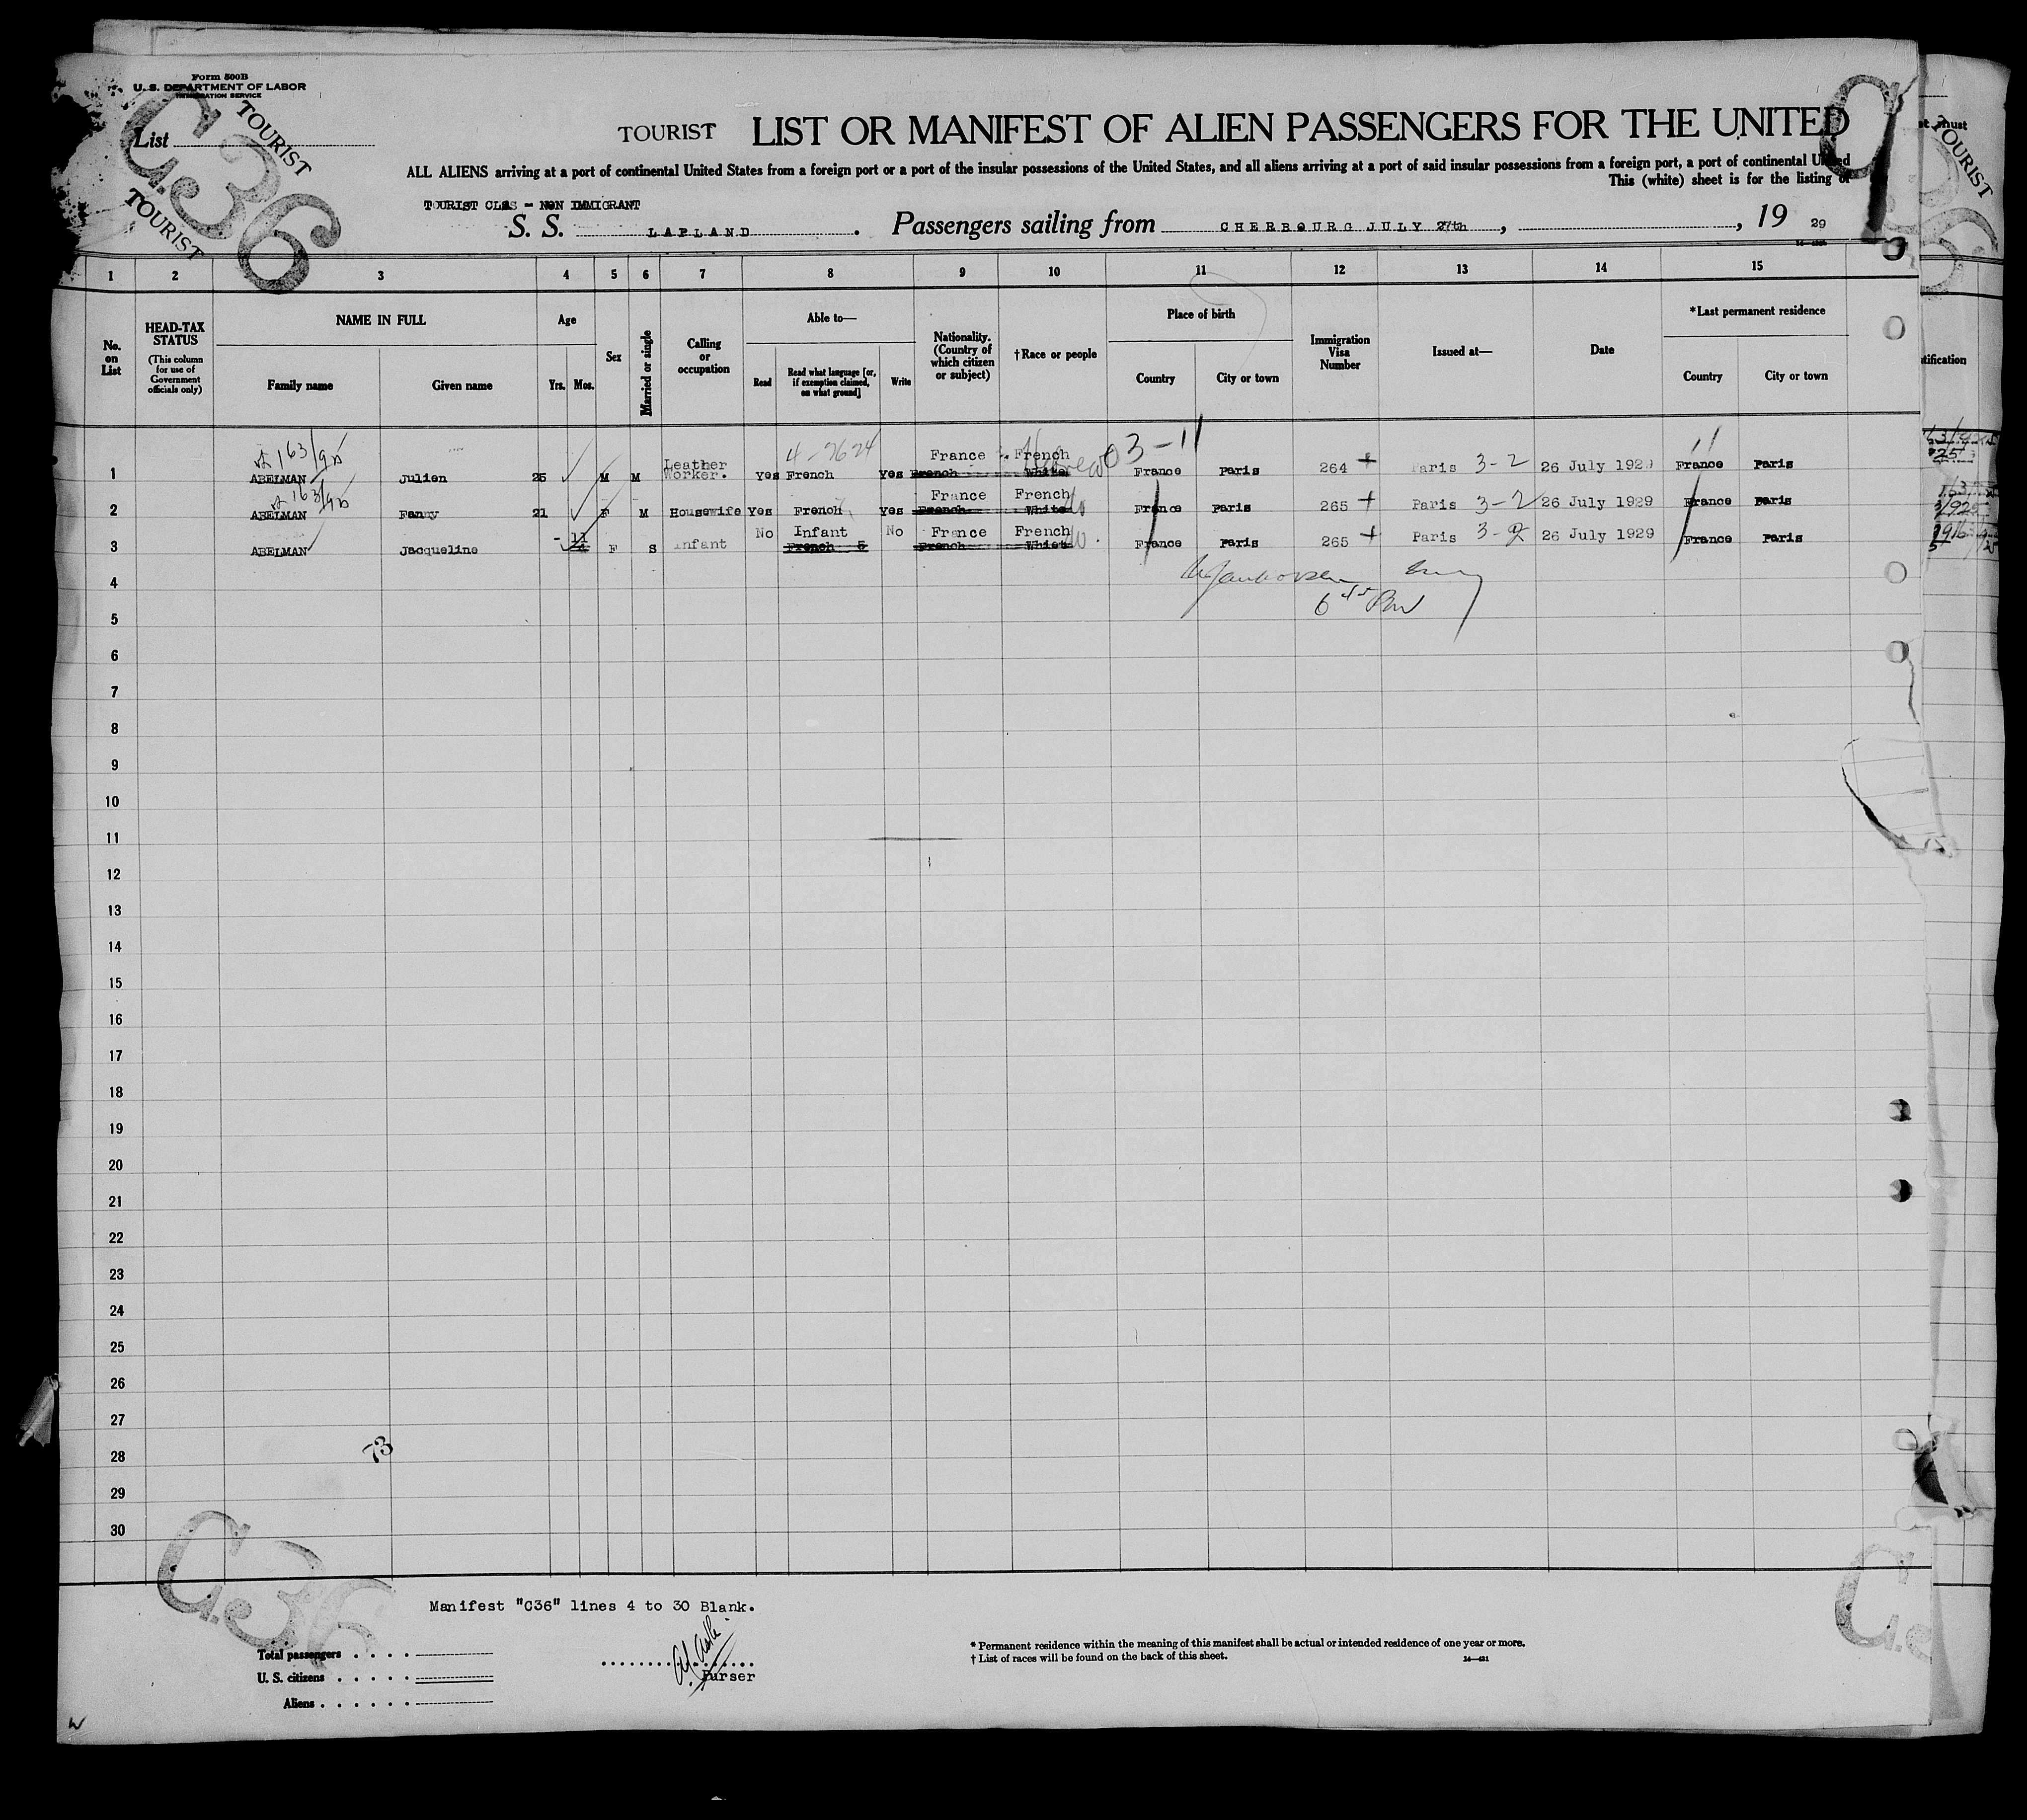 Form 500B
U. S. DEPARTMENT OF LABOR
IMMIGRATION SERVICE
List
TOURIST
TOURIST
C36
TOURIST LIST OR MANIFEST OF ALIEN PASSENGERS FOR THE UNITED
ALL ALIENS arriving at a port of continental United States from a foreign port or a port of the insular possessions of the United States, and all aliens arriving at a port of said insular possessions from a foreign port, a port of continental United
This (white) sheet is for the listing of
TOURIST CLAS - NON IMMIGRANT
S. S. LAPLAND. Passengers sailing from CHERBOURG JULY 27th, , 19 29
TOURIST
1 2 3 4 5 6 7 8 9 10 11 12 13 14 15
No. on List
HEAD-TAX STATUS (This column for use of Government officials only)
NAME IN FULL
Family name
Given name
Age
Yrs. Mos.
Sex
Married or single
Calling or occupation
Able to—
Read
Read what language [or, if exemption claimed, on what ground]
Write
Nationality. (Country of which citizen or subject)
†Race or people
Place of birth
Country
City or town
Immigration Visa Number
Issued at—
Date
*Last permanent residence
Country
City or town
163/95
4-7624
03-11
11
1 ABELMAN Julien 25 M M Leather Worker. Yes French Yes France French French White Hebrew France Paris 264 Paris 3-2 26 July 1929 France Paris
163/95
2 ABELMAN Fanny 21 F M Housewife Yes French Yes France French French White France Paris 265 Paris 3-2 26 July 1929 France Paris
3 ABELMAN Jacqueline - 11 F S Infant No Infant French No France French French Whiet France Paris 265 Paris 3-2 26 July 1929 France Paris
4
5
6
7
8
9
10
11
12
13
14
15
16
17
18
19
20
21
22
23
24
25
26
27
28
29
30
73
C36
Manifest "C36" lines 4 to 30 Blank.
Total passengers
U. S. citizens
Aliens
Purser
* Permanent residence within the meaning of this manifest shall be actual or intended residence of one year or more.
† List of races will be found on the back of this sheet.
14—431
W